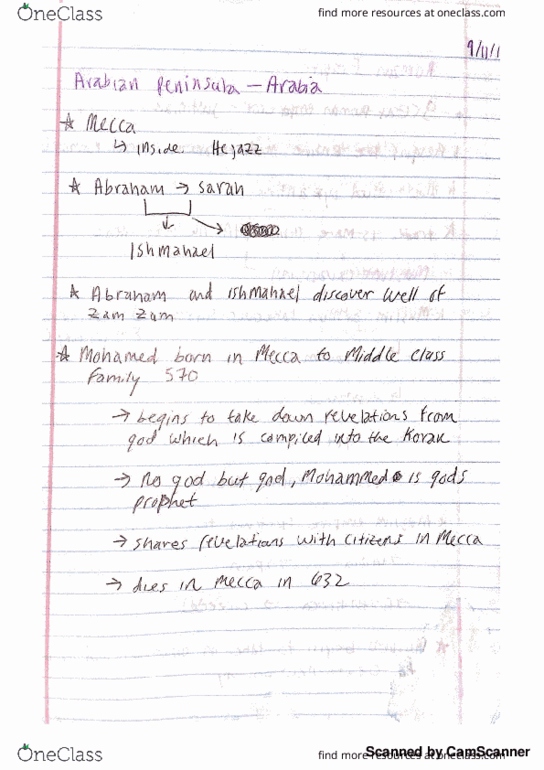 OneClass
find more resources at oneclass.com
9/11/1
Arabian Peninsula — Arabia
☆ Mecca
↳ inside Hejazz
☆ Abraham → Sarah
Ishmahael
☆ Abraham and ishmahael discover well of
Zam Zam
☆ Mohamed born in Mecca to Middle class
Family 570
→ begins to take down revelations from
god which is compiled into the Koran
→ No god but god, Mohammed is gods
prophet
→ shares revelations with citizens in Mecca
→ dies in Mecca in 632
OneClass
find more resources at oneclass.com
Scanned by CamScanner